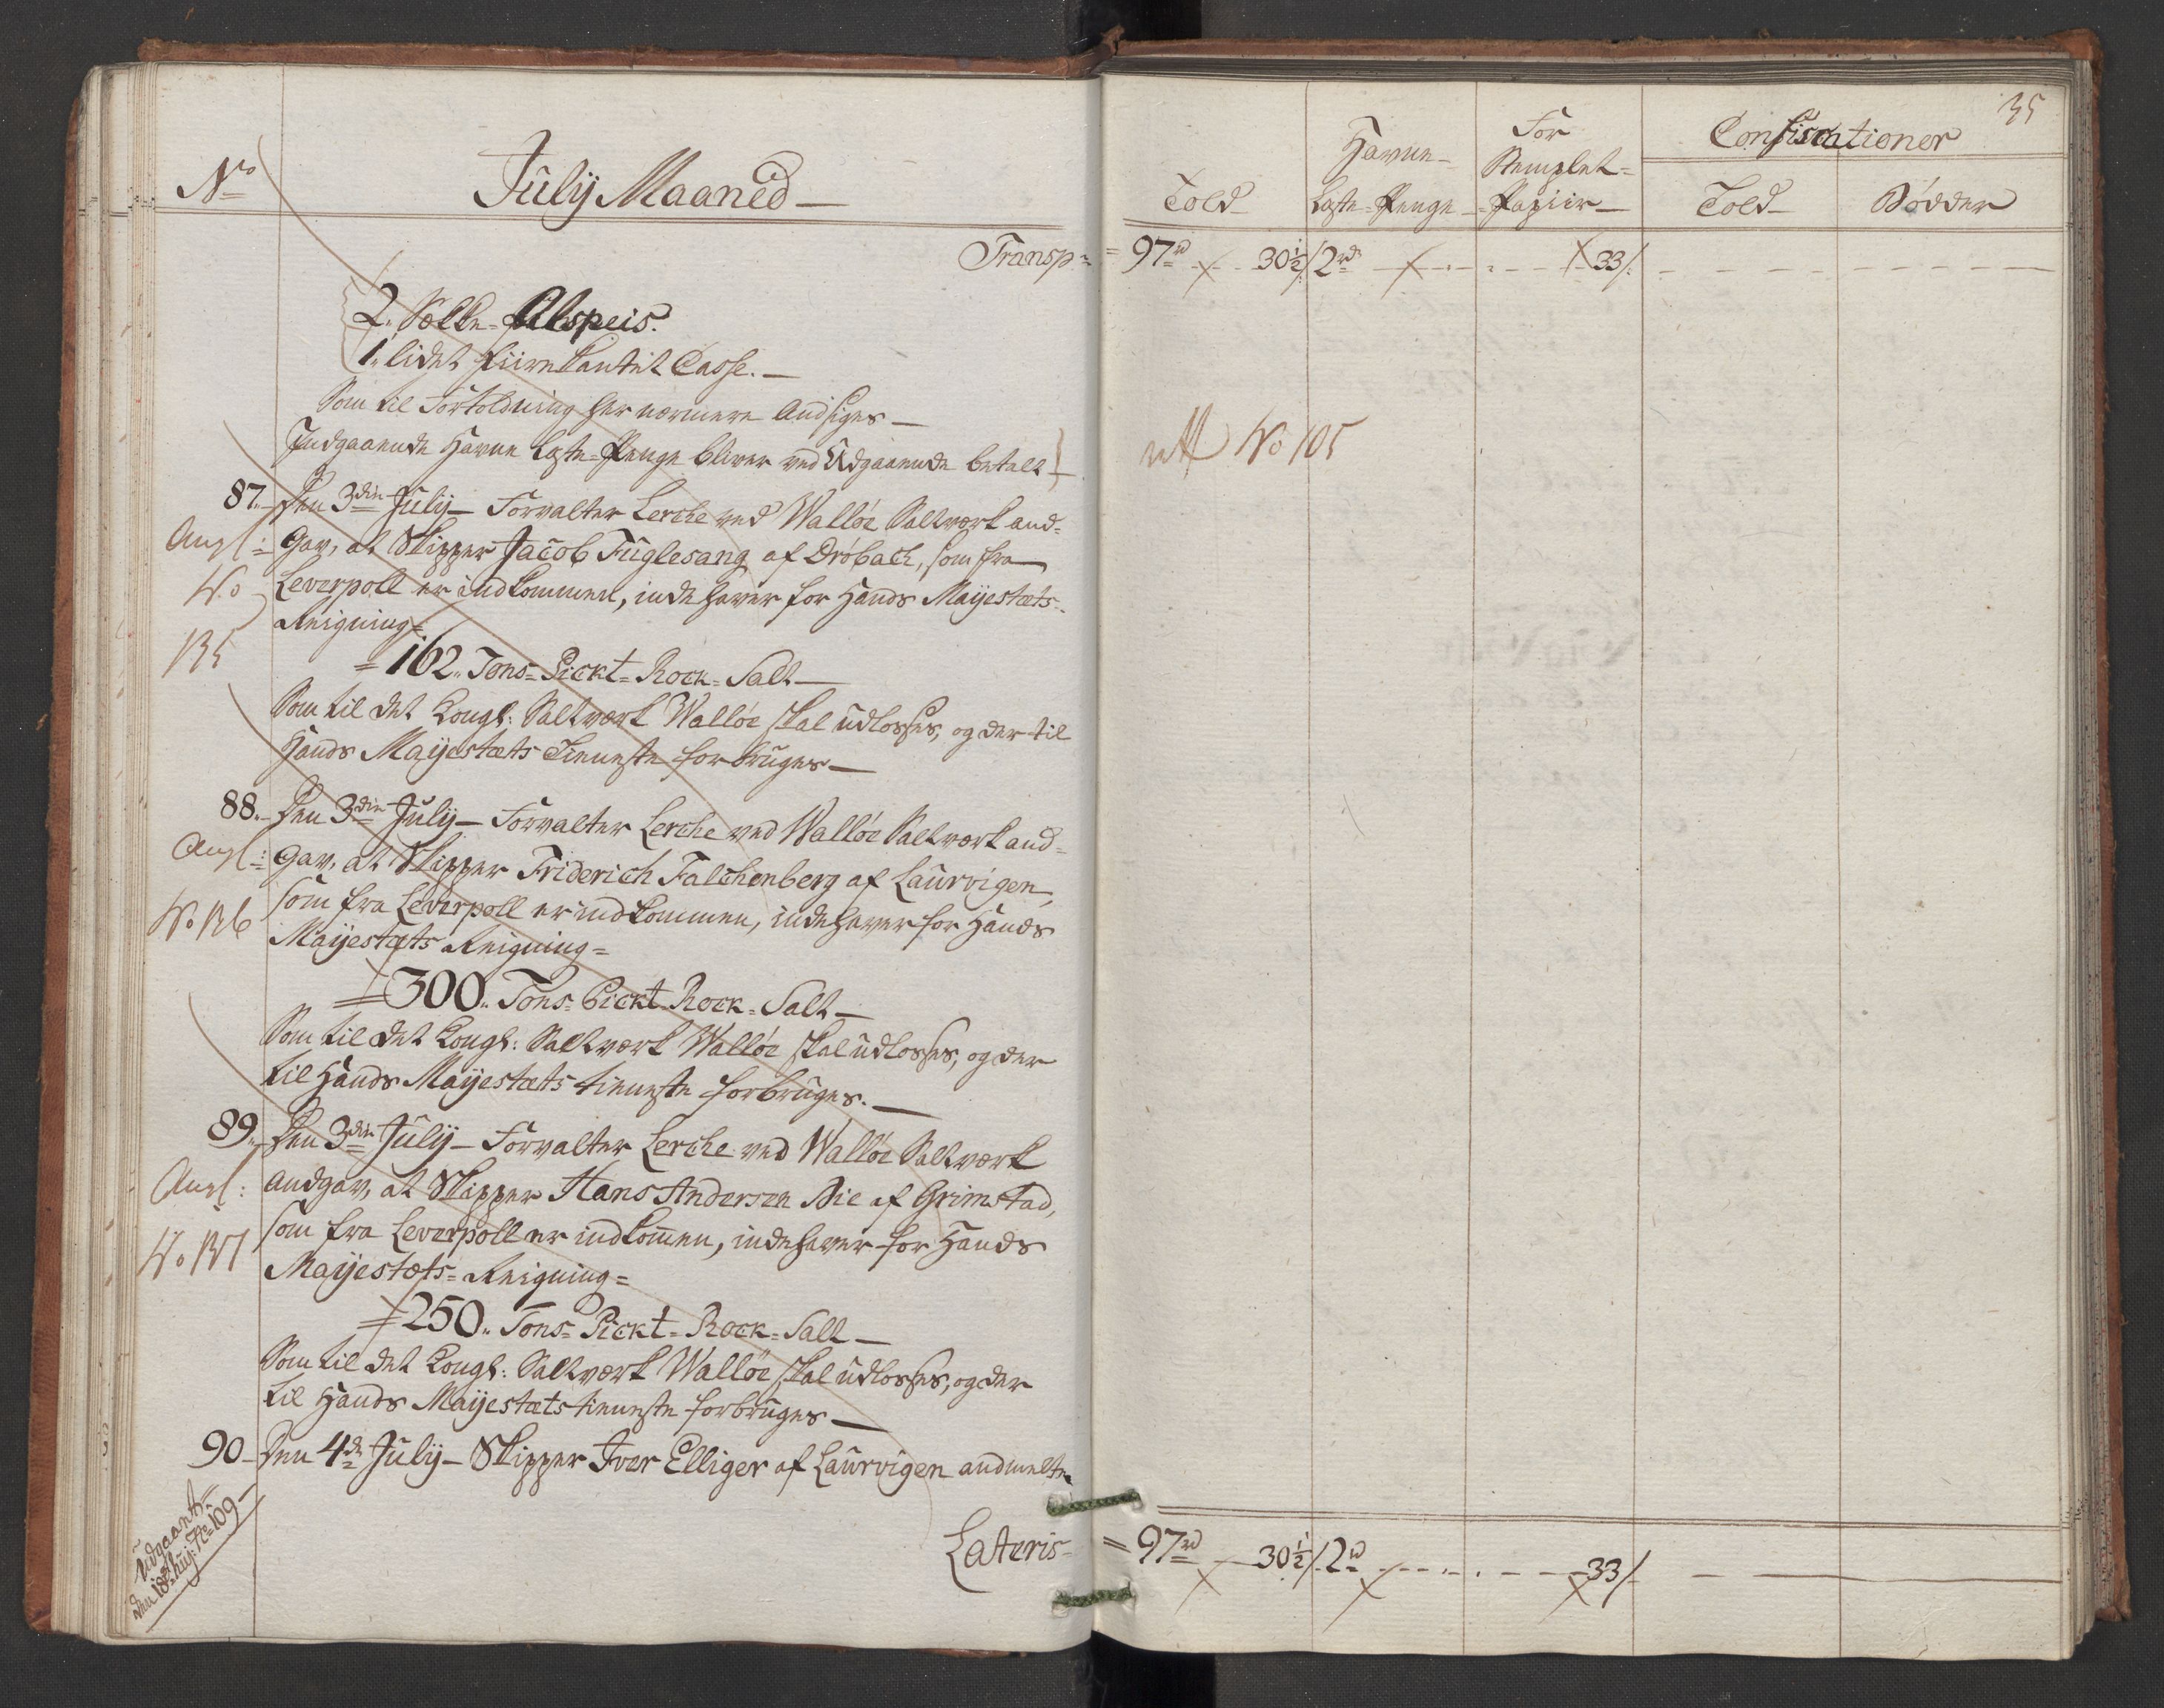 No
July Maaned
Transp:
2. Sække Alspeis.
1. lidet fiirekantet Casse.
Som til Fortoldning her nærmere Andsiges
Indgaaende Havne Læste-Penge bliver ved Udgaaende betalt
87. Den 3die July – Forvalter Lerche ved Walløe Saltværk and-
Angl: gav, at Skipper Jacob Fuglesang af Drøbach, som fra
No Leverpoll er indkommen, indehaver for Hands Mayestæts
Reigning
135
162. Tons Pickt Rock Salt
Som til det Kongl: Saltværk Walløe skal udlosses, og der til
Hands Mayestæts Tieneste forbruges
88. Den 3die July – Forvalter Lerche ved Walløe Saltværk and-
Angl: gav, at Skipper Friderich Falchenberg af Laurvigen,
No 136 som fra Leverpoll er indkommen, indehaver for Hands
Mayestæts Reigning
300. Tons Pickt Rock Salt
Som til det Kongl: Saltværk Walløe skal udlosses, og der
til Hands Mayestæts tieneste forbruges.
89. Den 3die July – Forvalter Lerche ved Walløe Saltværk
Angl: andgav, at Skipper Hans Andersen Bie af Grimstad,
No 137 som fra Leverpoll er indkommen, indehaver for Hands
Mayestæts Reigning
250. Tons Pickt Rock Salt
Som til det Kongl: Saltværk Walløe skal udlosses, og der
til Hands Mayestæts tieneste forbruges
90 Den 4de July – Skipper Iver Elliger af Laurvigen andmelte
Udgaaende
den 18de huj: No 109
Lateris
35
Told
Havne-
Læste-Penge
For
Stemplet-
Papiir
Confiscationer
Told
Bødder
97rd 30½ 2rd 33
No 105
97rd 30½ 2rd 33